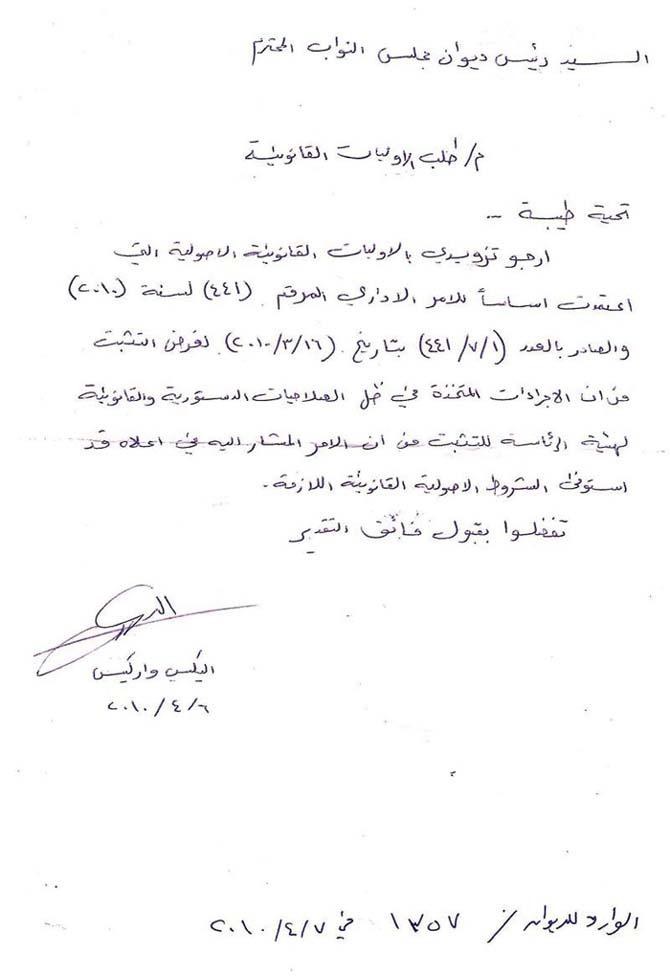 السيد رئيس ديوان مجلس النواب المحترم
م/ طلب الاوليات القانونية
تحية طيبة ..
ارجو تزويدي بالاوليات القانونية الاصولية التي
اعتمدت اساساً للامر الاداري المرقم (٤٤١) لسنة (٢٠١٠)
والصادر بالعدد (٤٤١/٧/١) بتاريخ (٢٠١٠/٣/١٦) لغرض التثبت
من ان الاجراءات المتخذة في ظل الصلاحيات الدستورية والقانونية
لهيئة الرئاسة للتثبت من ان الامر المشار اليه في اعلاه قد
استوفى الشروط الاصولية القانونية اللازمة.
تفضلوا بقبول فائق التقدير
اليكس واركيس
٢٠١٠/٤/٦
الوارد للديوان / ١٣٥٧ في ٢٠١٠/٤/٧